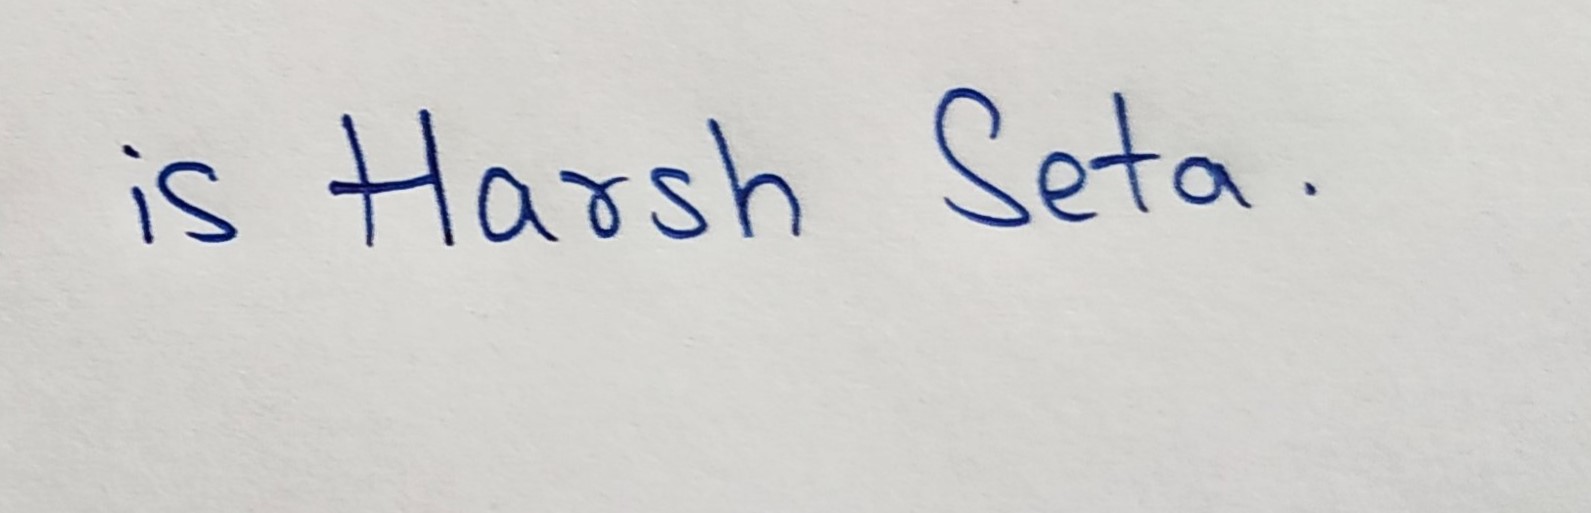 is Harsh Seta.